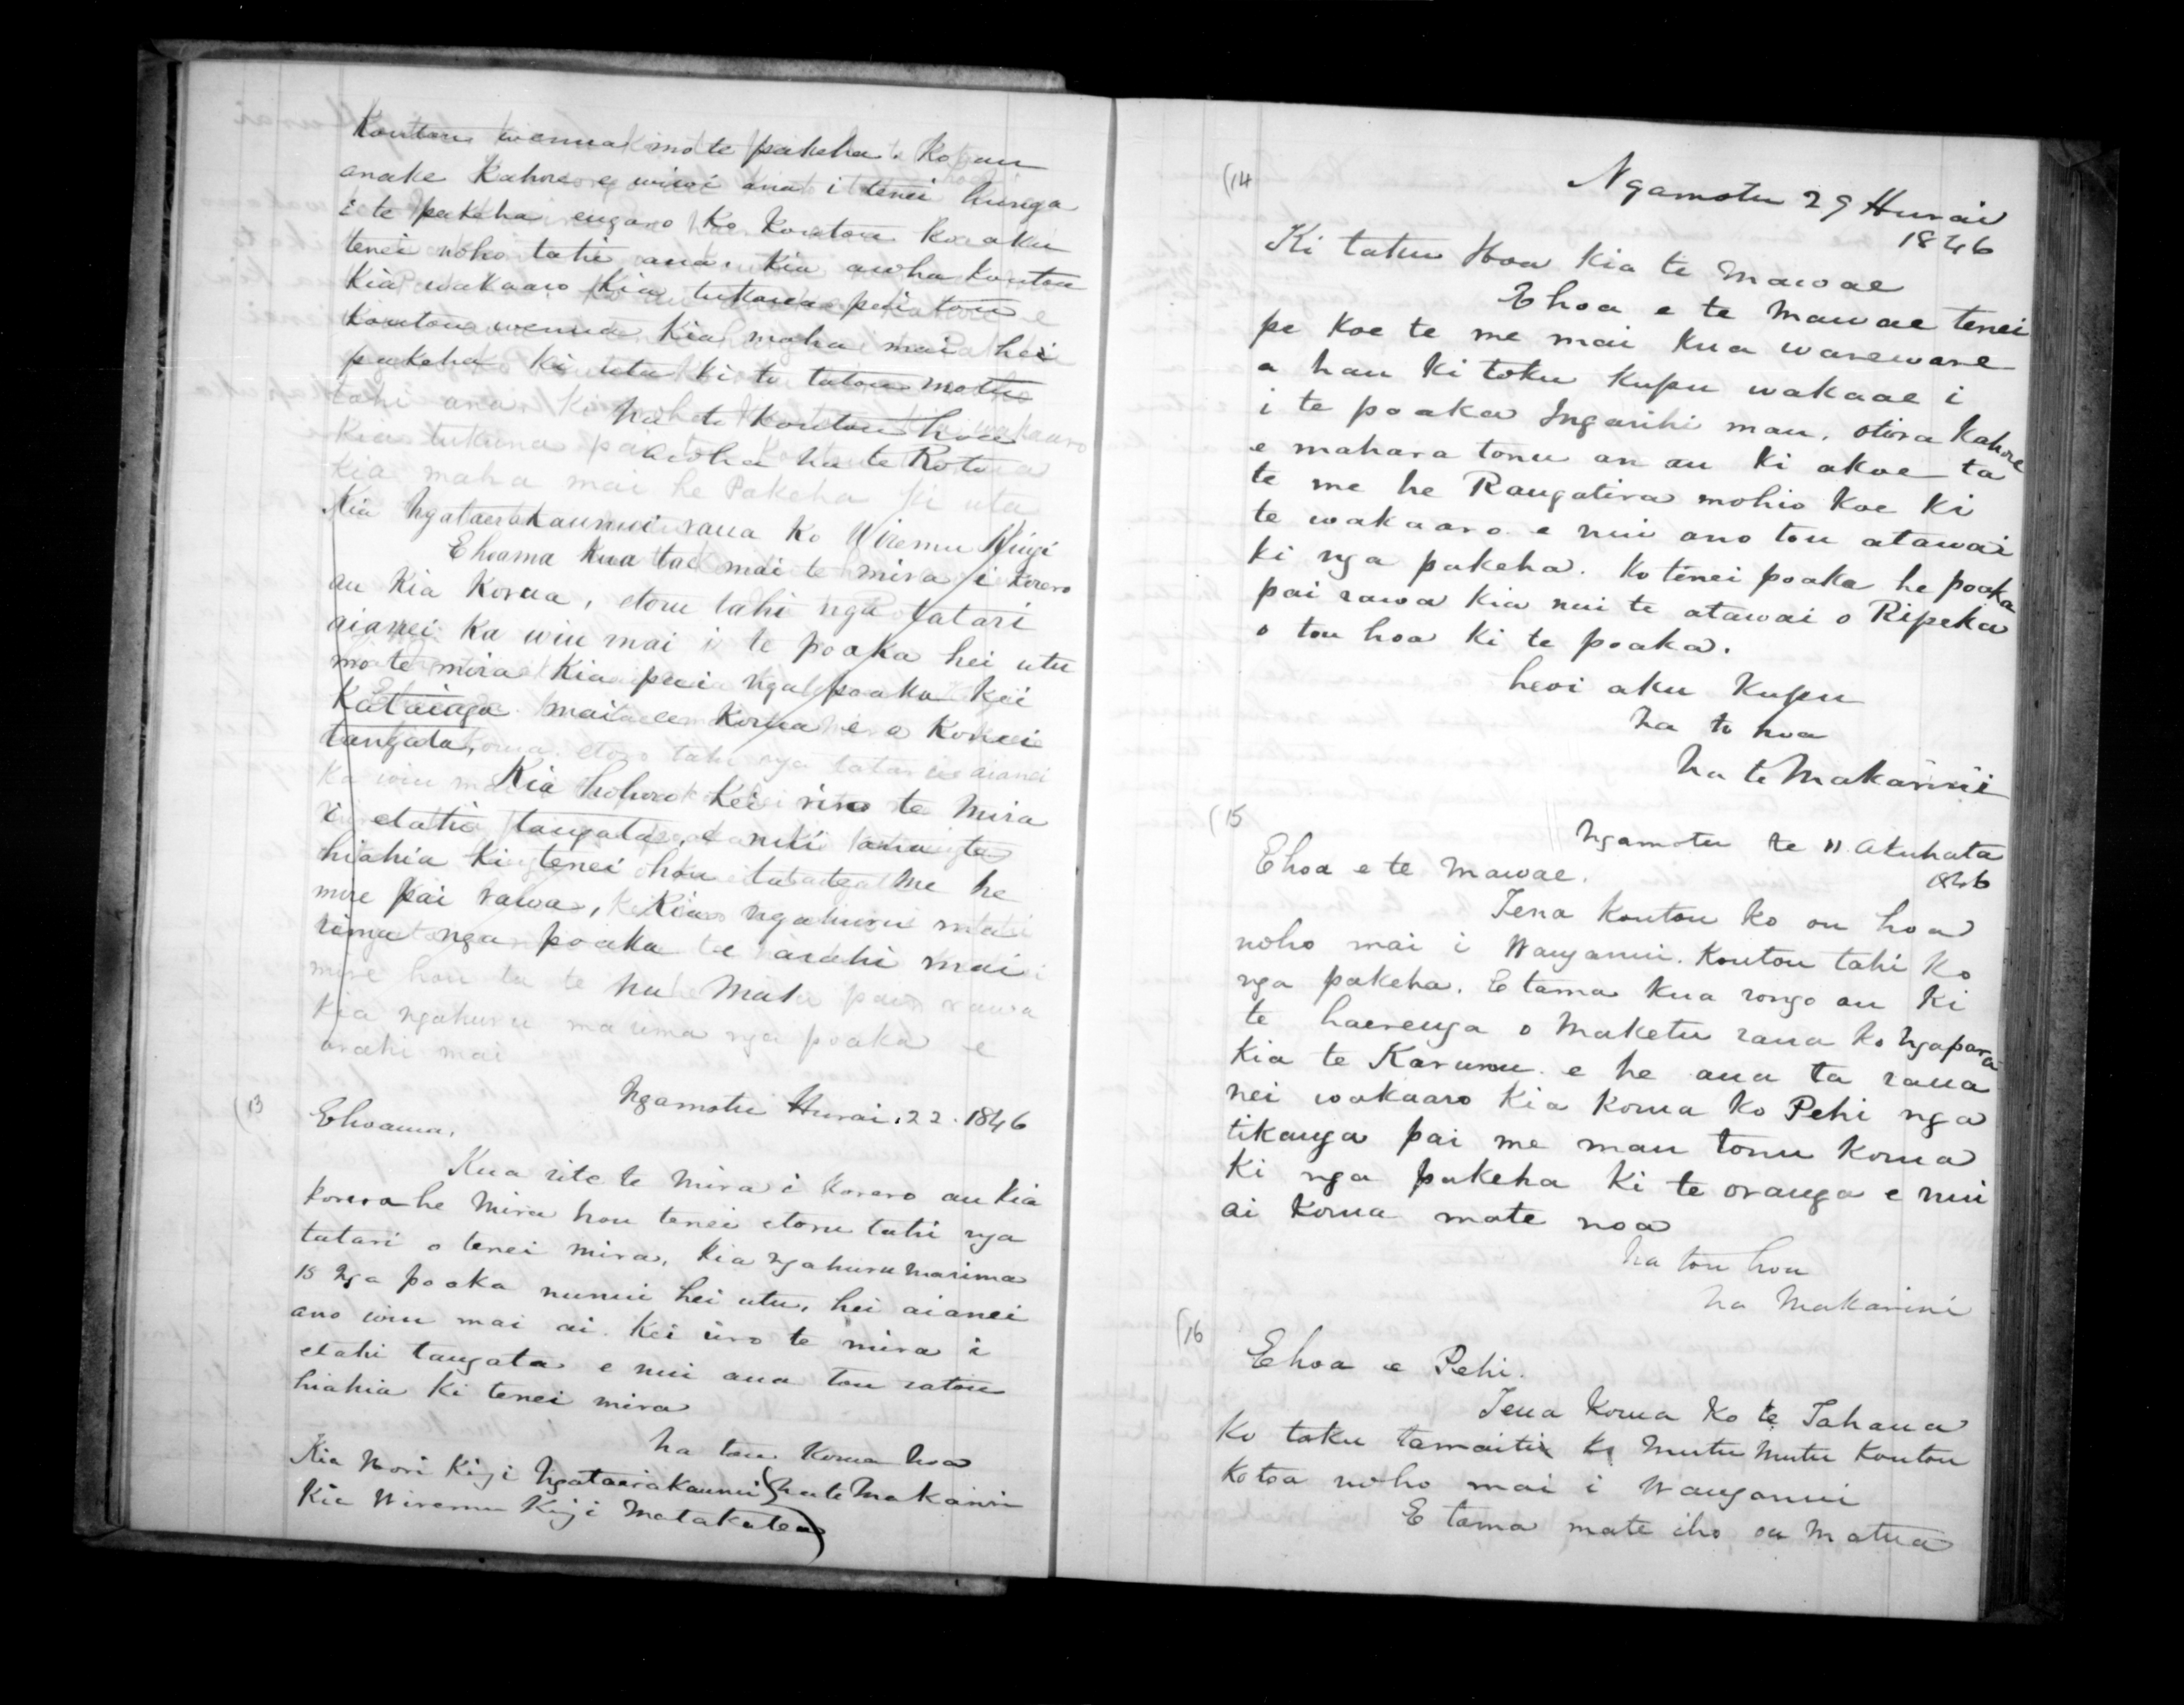 Koutou wenua mo te pakeha. Ko au
anake Kahore e wiwi ana i tenei hunga
i te pakeha engaro Ko Koutou Ko aku
tenei noho tahi ana. Kia aroha Koutou
Kia wakaaro Kia tukua pai tou
Koutou wenua Kia maha mai hei
pakeha ki uta ki to tatou motu
Na to Koutou hoa
Aroha na te Roto
Kia Ngataerakaunui raua Ko Wiremu Kingi
Ehoama Kua tae mai te mira i Korero
au Kia Korua, etoru tahi nga tatari
aianei Ka wiu mai i te poaka hei utu
mo te mira Kia pai nga poaka Kei
mai Korua e
tangata,
Kia hohoro Kei riro te Mira
i etahi tangata, e nui ana te
hiahia ki tenei hou me he
mire pai rawa, Kia ngahuru ma
rima nga poaka te arahi mai
na Mak
(13
Ngamotu Hurai. 22. 1846
Ehoama,
Kua rite te Mira i Korero au Kia
Korua he Mira hou tenei etoru tahi nga
tatari o tenei mira, Kia ngahuru marima
15 Nga poaka nunui hei utu, hei aianei
ano wiu mai ai. Kei riro te mira i
etahi tangata e nui ana tou ratou
hiahia Ki tenei mira
Na tou Korua hoa
Kia Nori Kigi Ngataerakaunui (Na te Makarini
Kia Wiremu Kigi Matakatea)
(14
Ngamotu 29 Hurai
1846
Ki taku Hoa Kia te Mawae
Ehoa e te Mawae tenei
pe Koe te me mai Kua wareware
a hau Ki toku Kupu wakaae i
i te poaka Ingarihi mau. otira Kahore
e mahara tonu an au Ki akoe ta
te me he Rangatira mohio Koe Ki
te wakaaro e nui ano tou atawai
ki nga pakeha. Ko tenei poaka he poaka
pai rawa Kia nui te atawai o Ripeka
o tou hoa Ki te poaka.
heoi aku Kupu
Na to hoa
Na te Makarini
(15
Ngamotu te 11 Akuhata
1846
Ehoa e te Mawae.
Tena Koutou Ko ou hoa
noho mai i Wanganui. Koutou tahi Ko
nga pakeha. E tama Kua rongo au Ki
te haerenga o Maketu raua Ko Ngapara
Kia te Karumu. e he ana ta raua
nei wakaaro Kia Korua Ko Pehi nga
tikanga pai me mau tonu Korua
Ki nga pakeha Ki te oranga e nui
ai Korua mate noa
Na tou hoa
Na Makarini
(16
Ehoa e Pehi.
Tena Korua Ko te Tahana
Ko taku tamaiti Ko Mutu Mutu Koutou
Katoa noho mai i Wanganui
E tama mate iho ou Matua